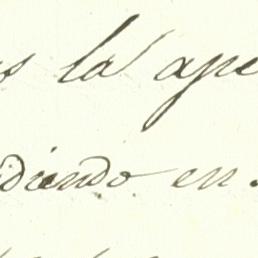 la ape
diendo en